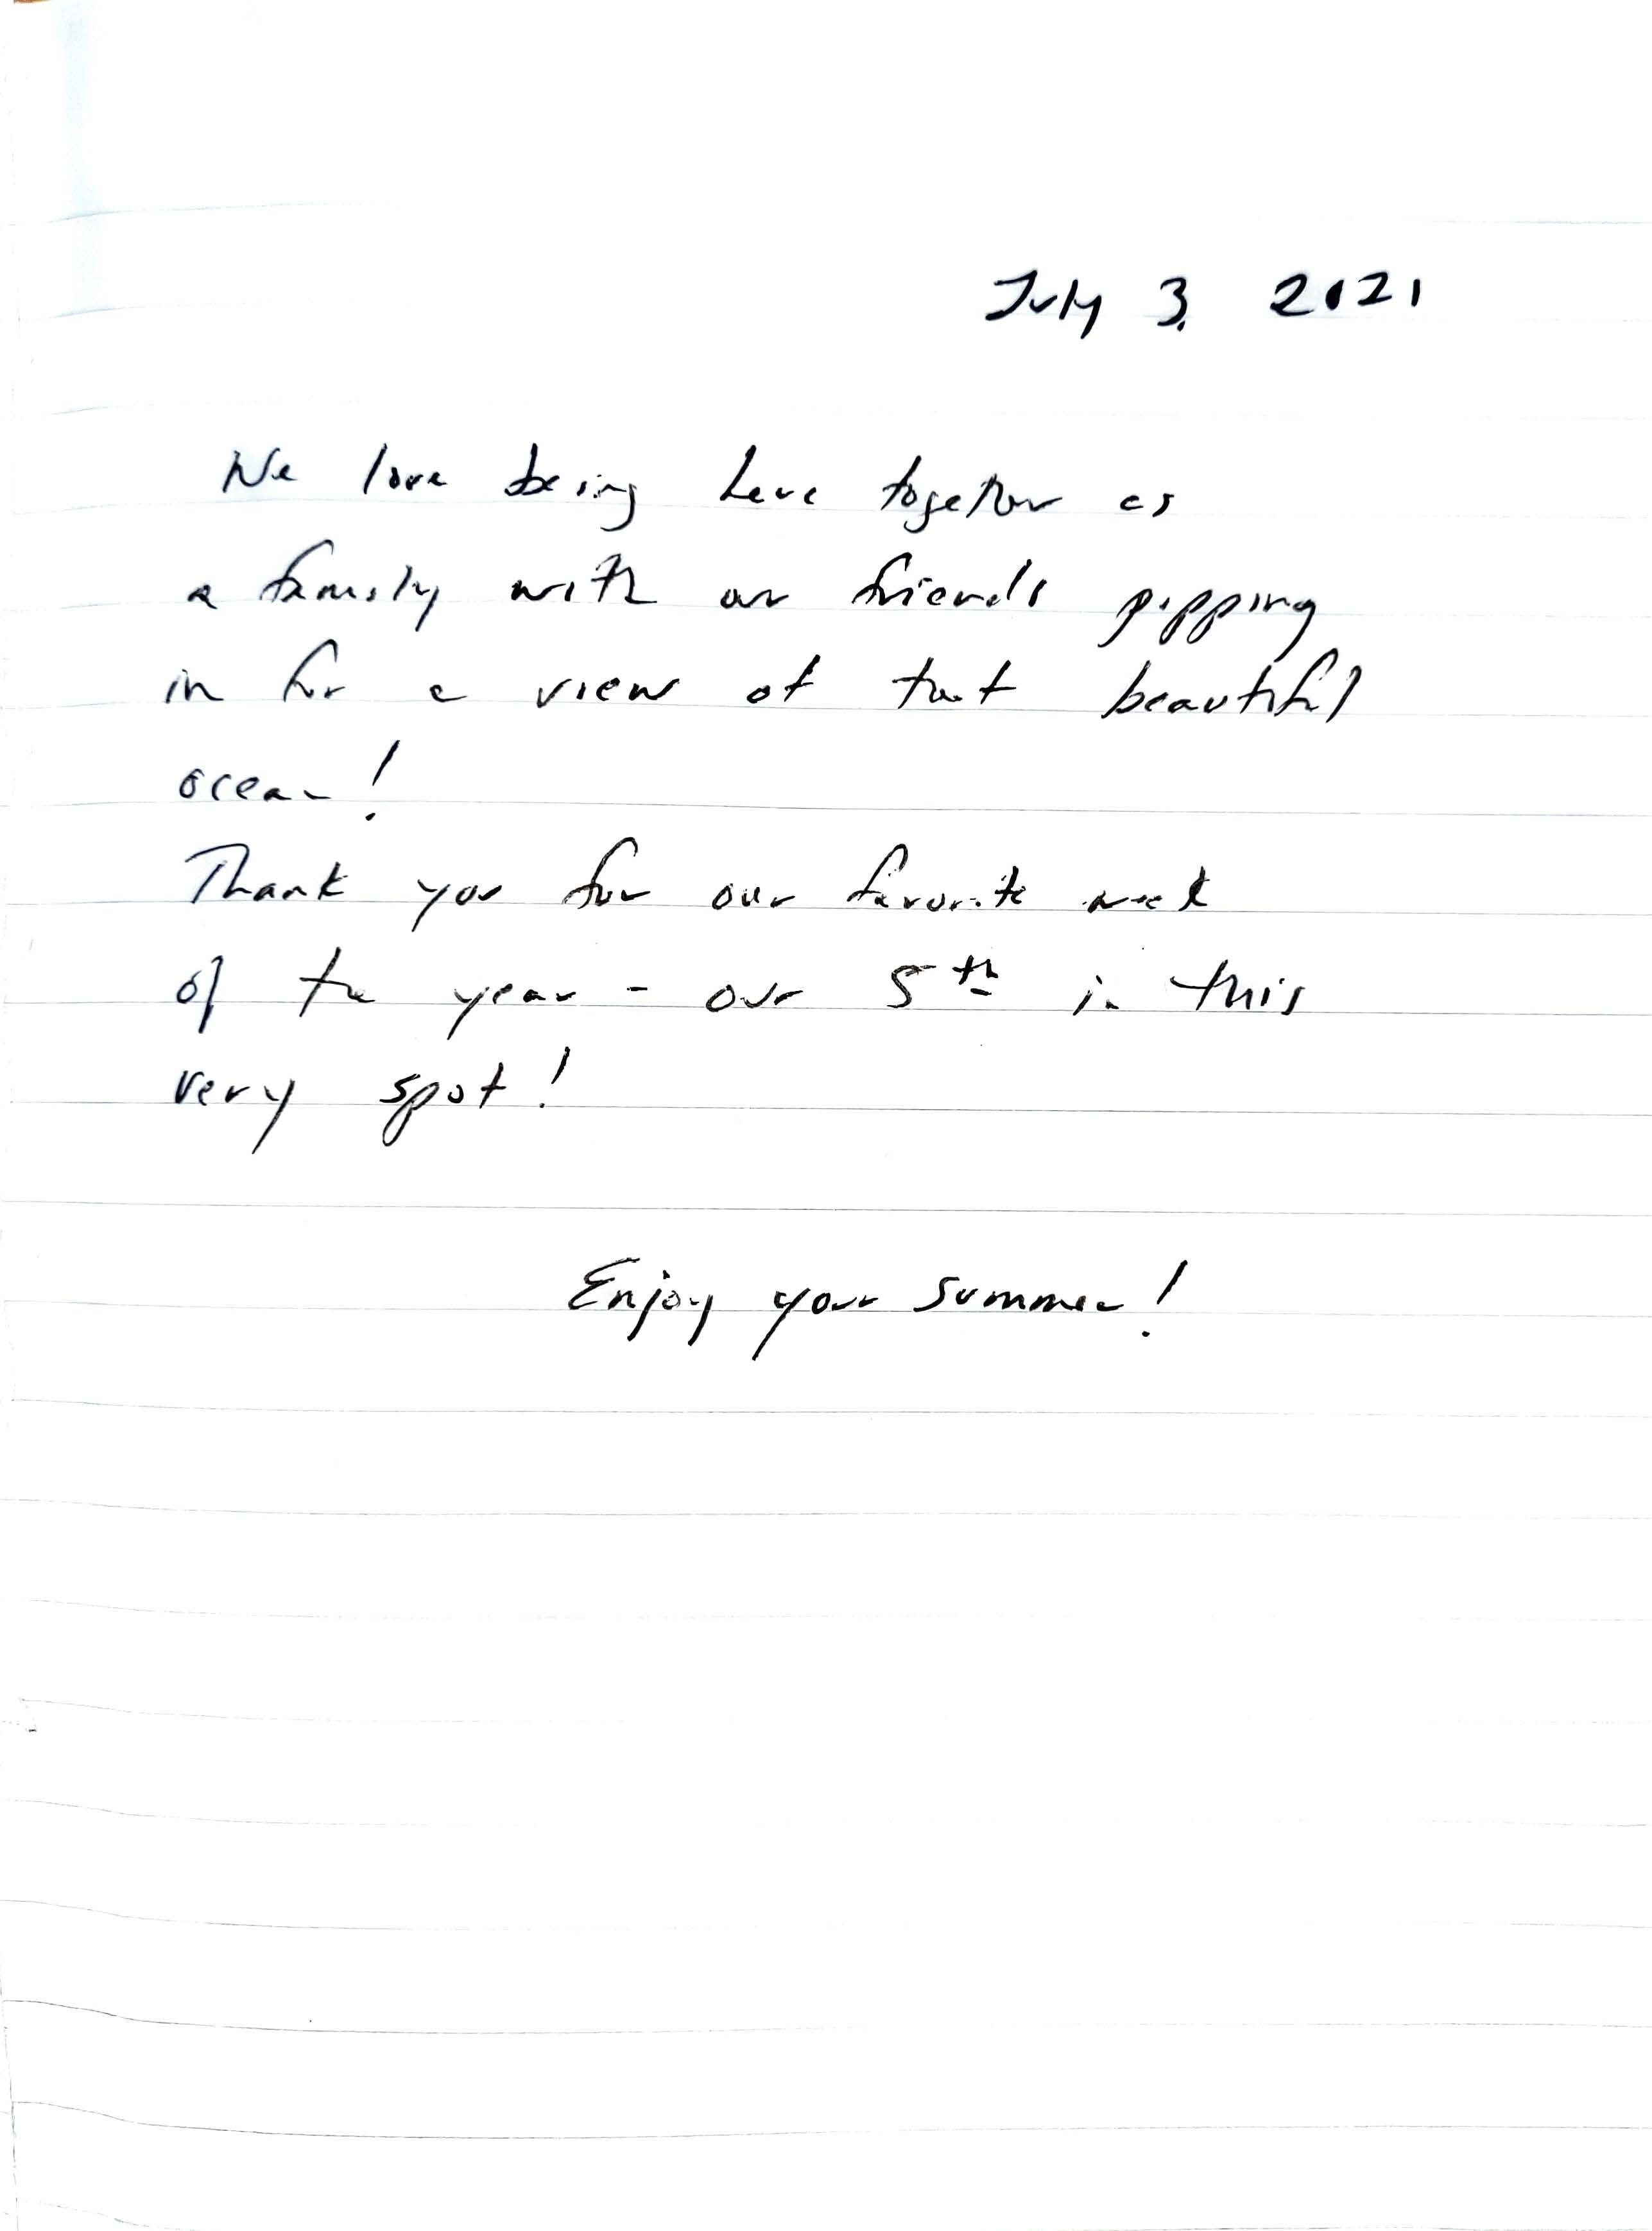 July 3, 2021
We love being here together as
a family with our friends popping
in for a view of that beautiful
ocean!
Thank you for our favorite week
of the year - our 5th in this
very spot!
Enjoy your summer!